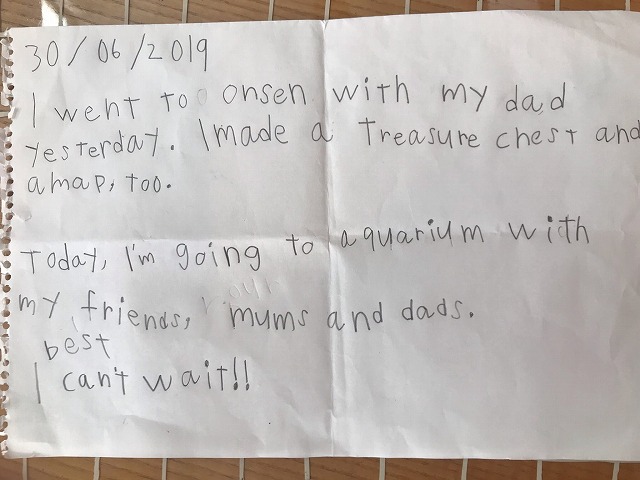 30/06/2019
I went to onsen with my dad
yesterday. I made a treasure chest and
a map, too.
Today, I'm going to aquarium with
my friends, mums and dads.
best
I can't wait!!